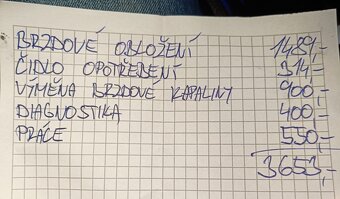 BRZDOVÉ OBLOŽENÍ 1489,-
ČIDLO OPOTŘEBENÍ 314,-
VÝMĚNA BRZDOVÉ KAPALINY 900,-
DIAGNOSTIKA 400,-
PRÁCE 550,-
3653,-